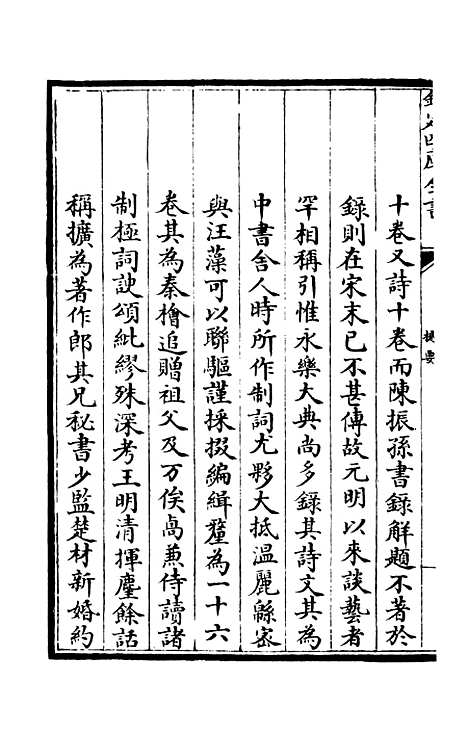 欽定四庫全書
提要
十卷又詩十卷而陳振孫書錄解題不著於
錄則在宋末已不甚傳故元明以來談藝者
罕相稱引惟永樂大典尚多錄其詩文其為
中書舍人時所作制詞尤夥大抵温麗緜密
與汪藻可以聯驅謹採掇編緝釐為一十六
卷其為秦檜追贈祖父及万俟卨兼侍讀諸
制極詞諛頌紕繆殊深考王明清揮麈餘話
稱擴為著作郎其兄秘書少監楚材新婚約